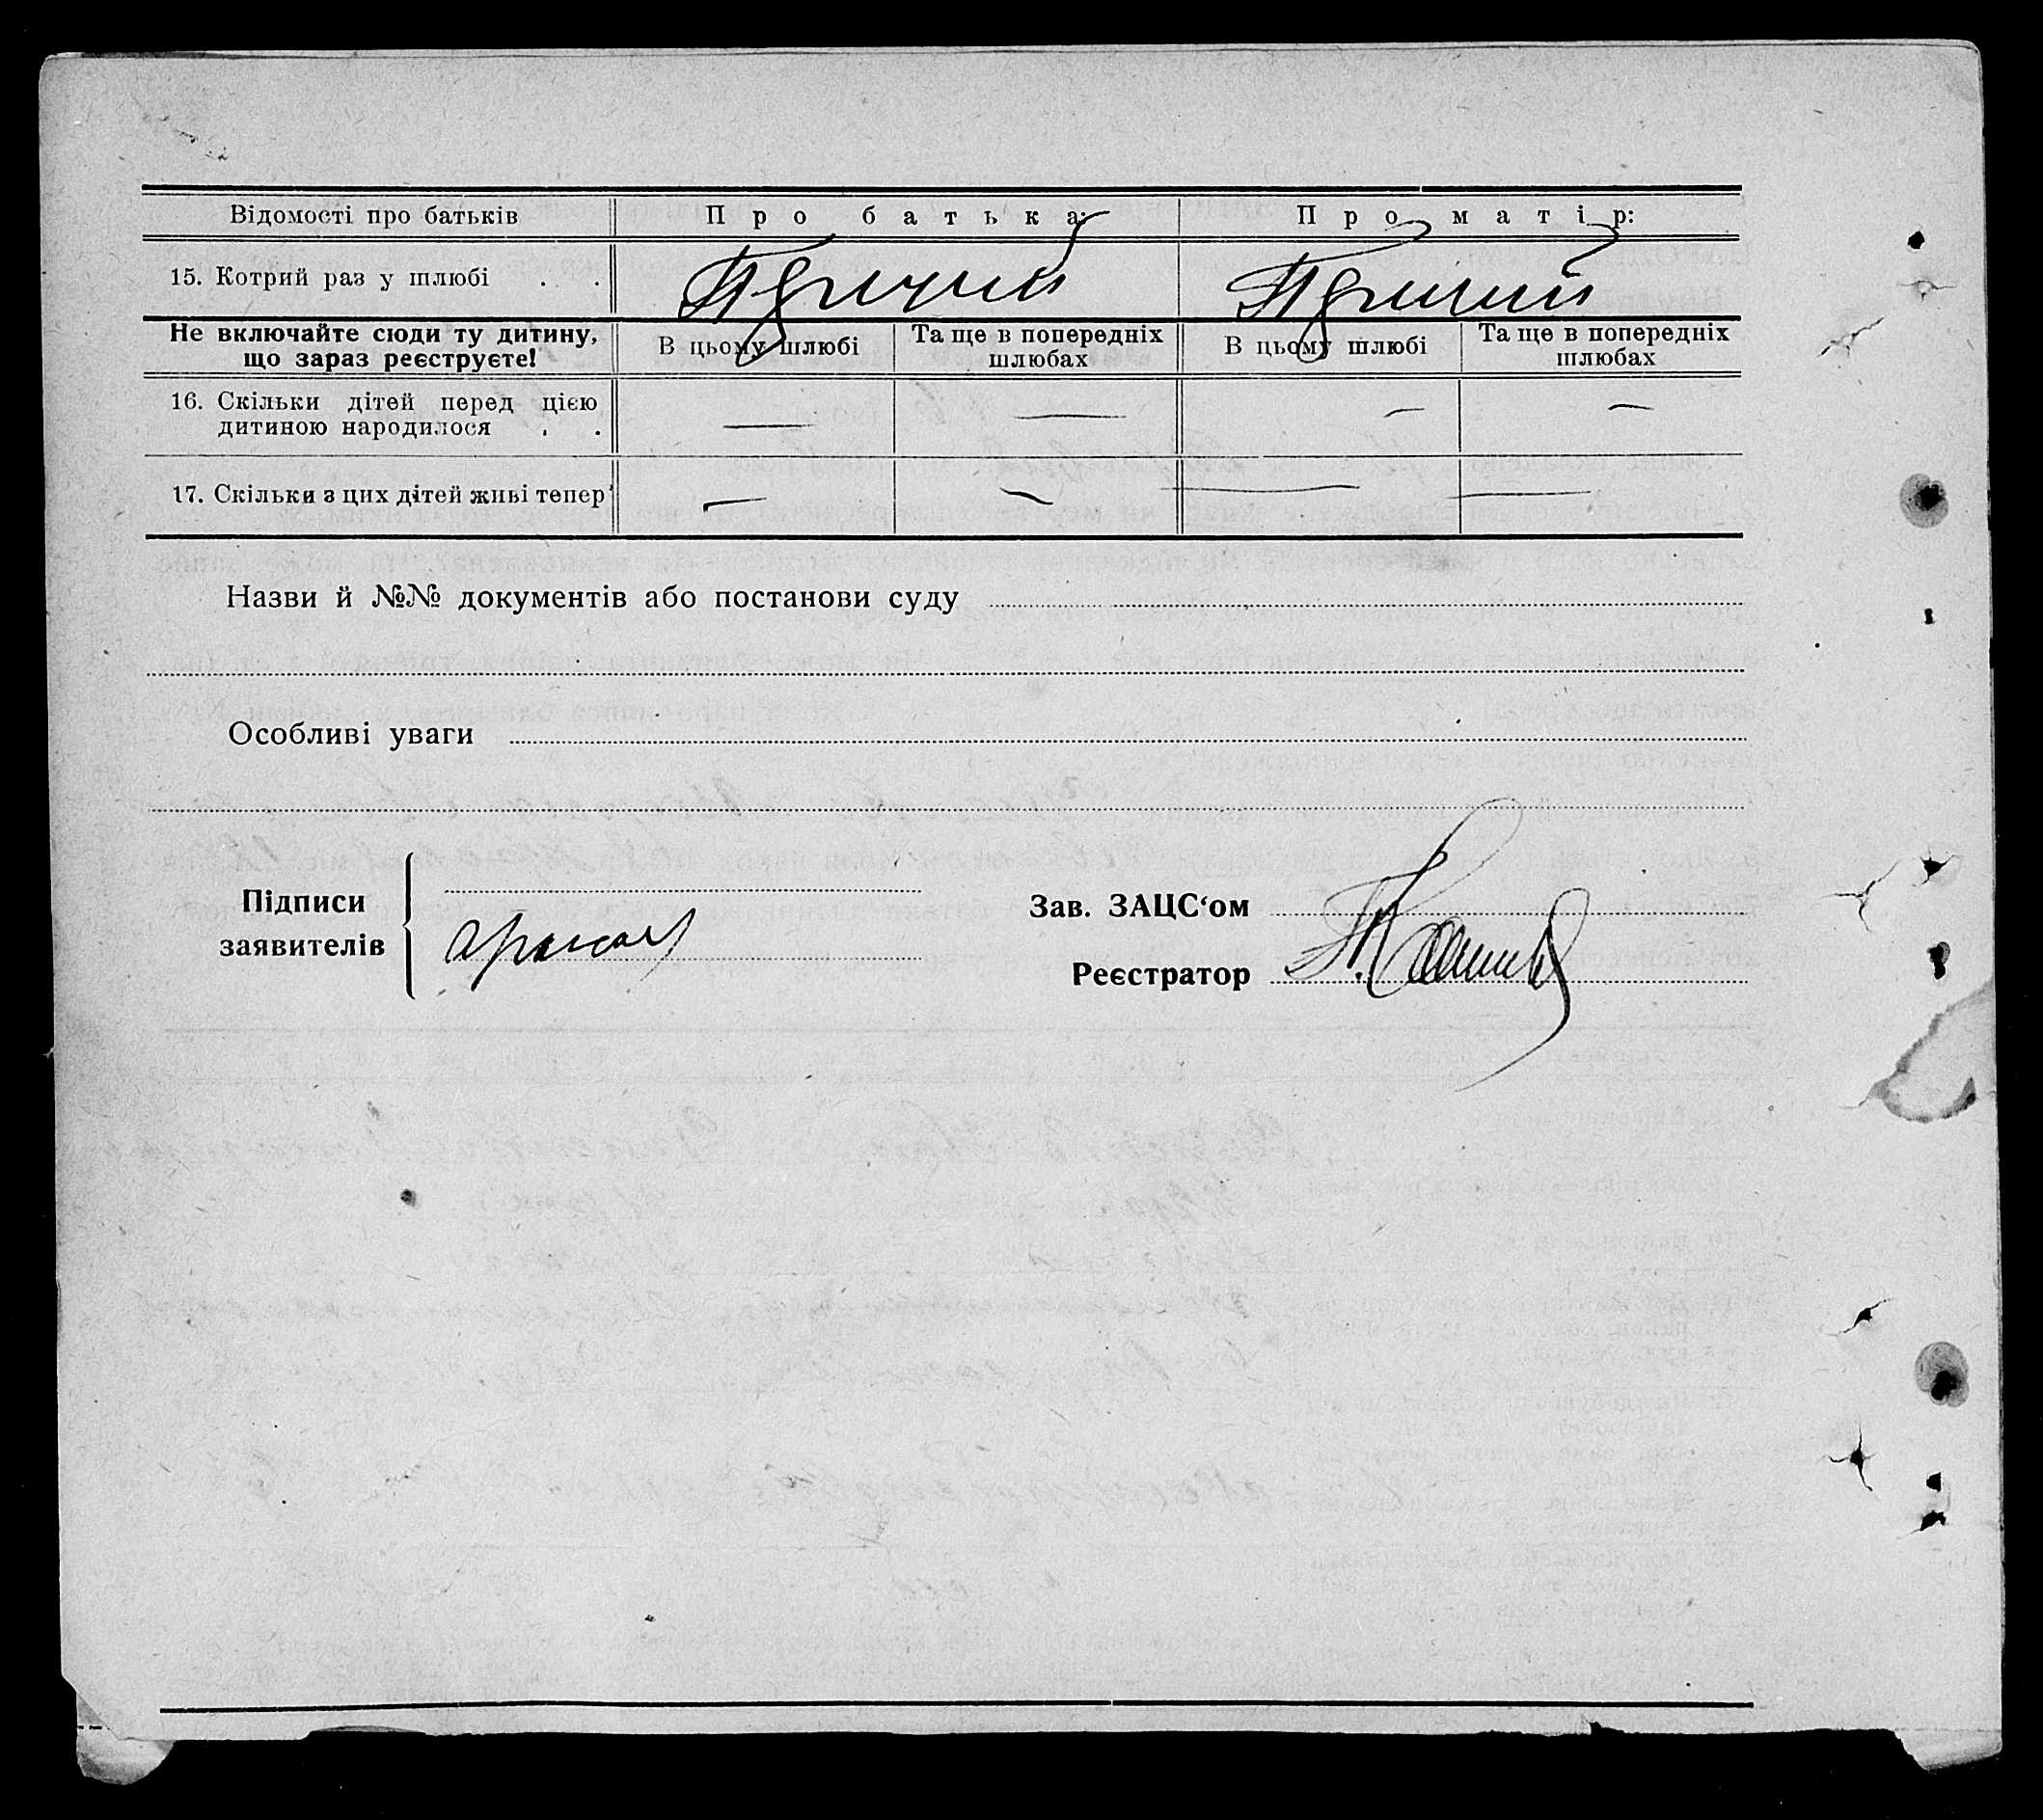 Відомості про батьків
Про батька:
Про матір:
15. Котрий раз у шлюбі . .
Перший
Перший
Не включайте сюди ту дитину,
що зараз реєструєте!
В цьому шлюбі
Та ще в попередніх
шлюбах
В цьому шлюбі
Та ще в попередніх
шлюбах
16. Скільки дітей перед цією
дитиною народилося . .
— — — —
17. Скільки з цих дітей живі тепер
— — — —
Назви й №№ документів або постанови суду
Особливі уваги
Підписи
заявителів
Зав. ЗАЦС‘ом
Реєстратор